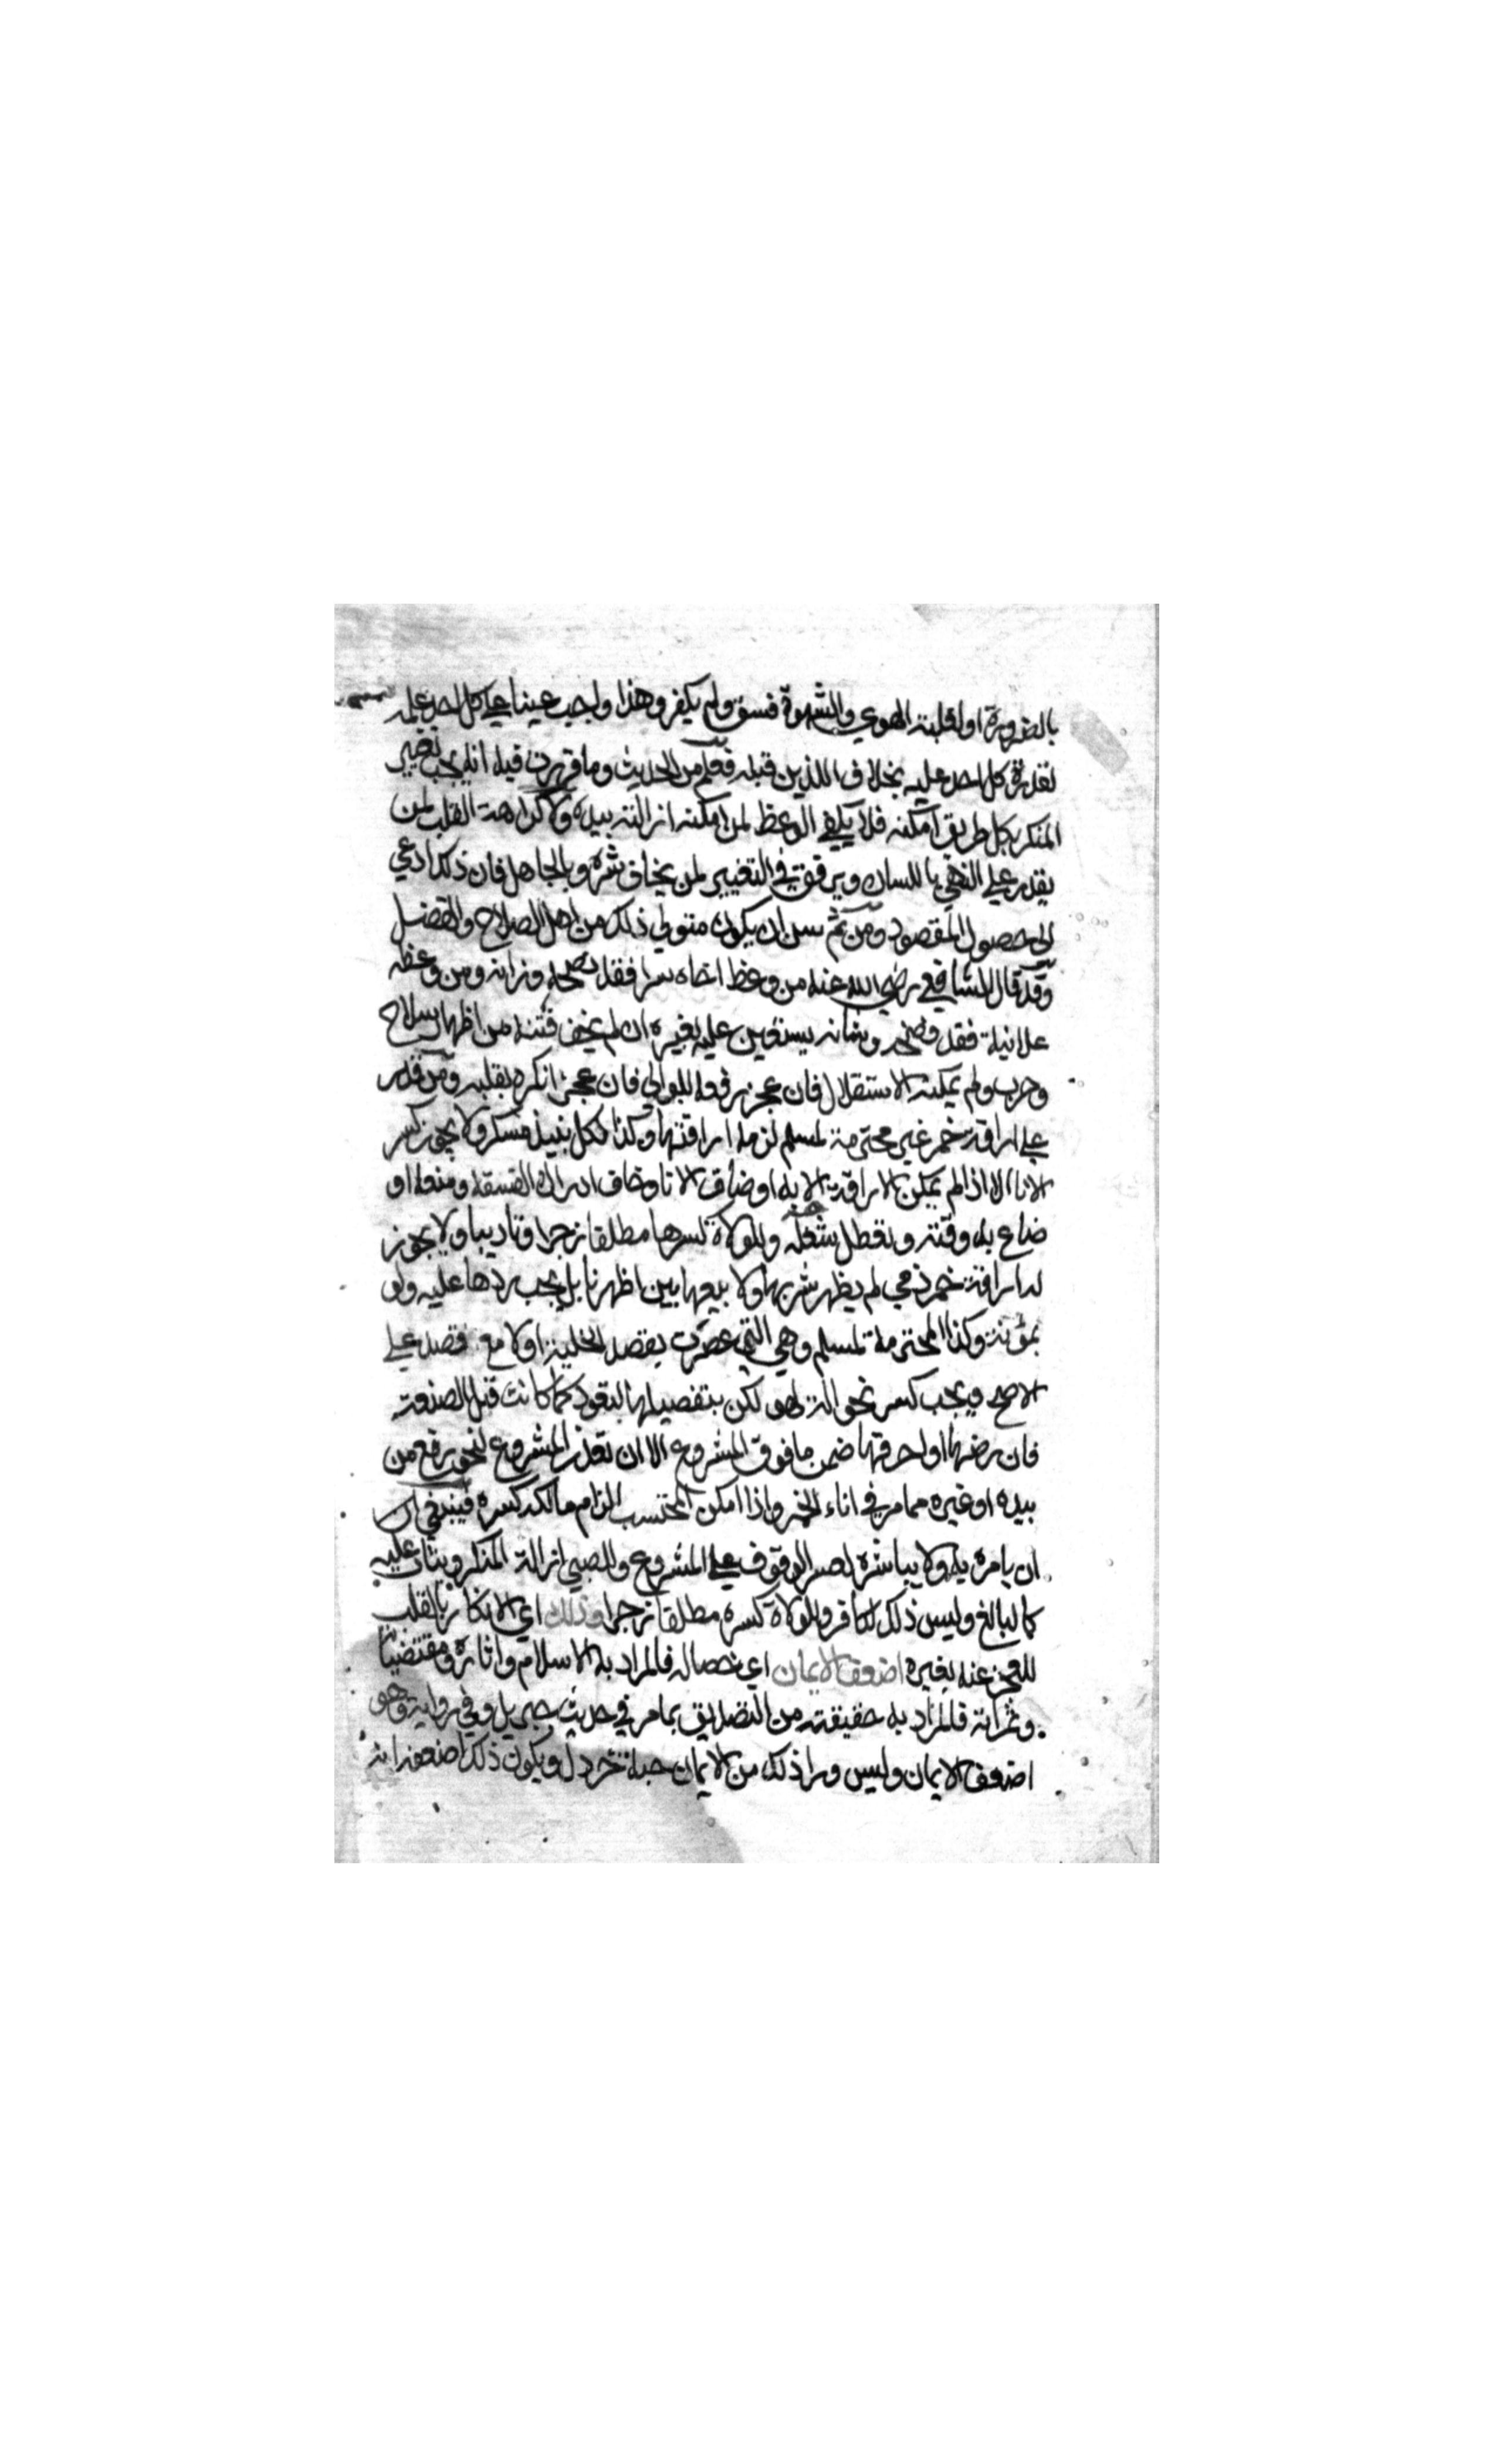 بالضرورة او لغلبة الهوي والشهوة فسق ولم يكفر وهذا واجب عينا علي كل احد علمه
لقدرة كل احد عليه بخلاف اللذين قبله فعلم من الحديث وما قررت فيه انه يجب تغيير
المنكر بكل طريق امكنه فلا يكفي الوعظ لمن امكنه ازالته بيده ولا كراهة القلب لمن
يقدر علي النهي باللسان ويرفق في التغيير لمن يخاف شره وبالجاهل فان ذلك ادعي
الي حصول المقصود ومن ثم سن ان يكون متولي ذلك من اهل الصلاح والفضل
وقد قال الشافعي رضي الله عنه من وعظ اخاه سرا فقد نصحه وزانه ومن وعظه
علانية فقد فضحه وشانه يستعين عليه بغيره ان لم يخف فتنة من اظهار سلاح
وحرب ولم يمكنه الاستقلال فان عجز رفعه للوالي فان عجز انكره بقلبه ومن قدر
علي اراقة خمر غير محترمة لمسلم لزمه اراقتها وكذا كل نبيذ مسكر ولا يجوز كسر
الانا الا اذا لم يمكن الاراقة الا به او ضاق الانا وخاف ادراك الفسقة ومنعه او
ضاع به وقته وتعطل شغله وللولاة كسرها مطلقا زجرا وتاديبا ولا يجوز
له اراقة خمر ذمي لم يظهر شربها ولا بيعها بين اظهرنا بل يجب ردها عليه ولو
بمؤنة وكذا المحترمة لمسلم وهي التي عصرت بقصد الخلية او لا مع قصد علي
الاصح ويجب كسر نحو الة لهو لكن بتفصيلها لتعود كما كانت قبل الصنعة
فان رضها او احرقها ضمن ما فوق المشروع الا ان تعذر المشروع لنحو رفع من
بيده او غيره مما مر في اناء الخمر واذا امكن المحتسب الزام مالكه كسره فينبغي ان
ان يامره به ولا يباشره لعسر الوقوف علي المشروع وللصبي ازالة المنكر ويثاب عليه
كالبالغ وليس ذلك لكافر وللولاة كسره مطلقا زجرا وذلك اي الانكار بالقلب
للعجز عنه بغيره اضعف الايمان اي خصاله فالمراد به الاسلام واثاره ومقتضياته
وثمراته فالمراد به حقيقته من التصديق بما مر في حديث جبريل وفي رواية وهو
اضعف الايمان وليس ورا ذلك من الايمان حبة خردل ويكون ذلك اضعف